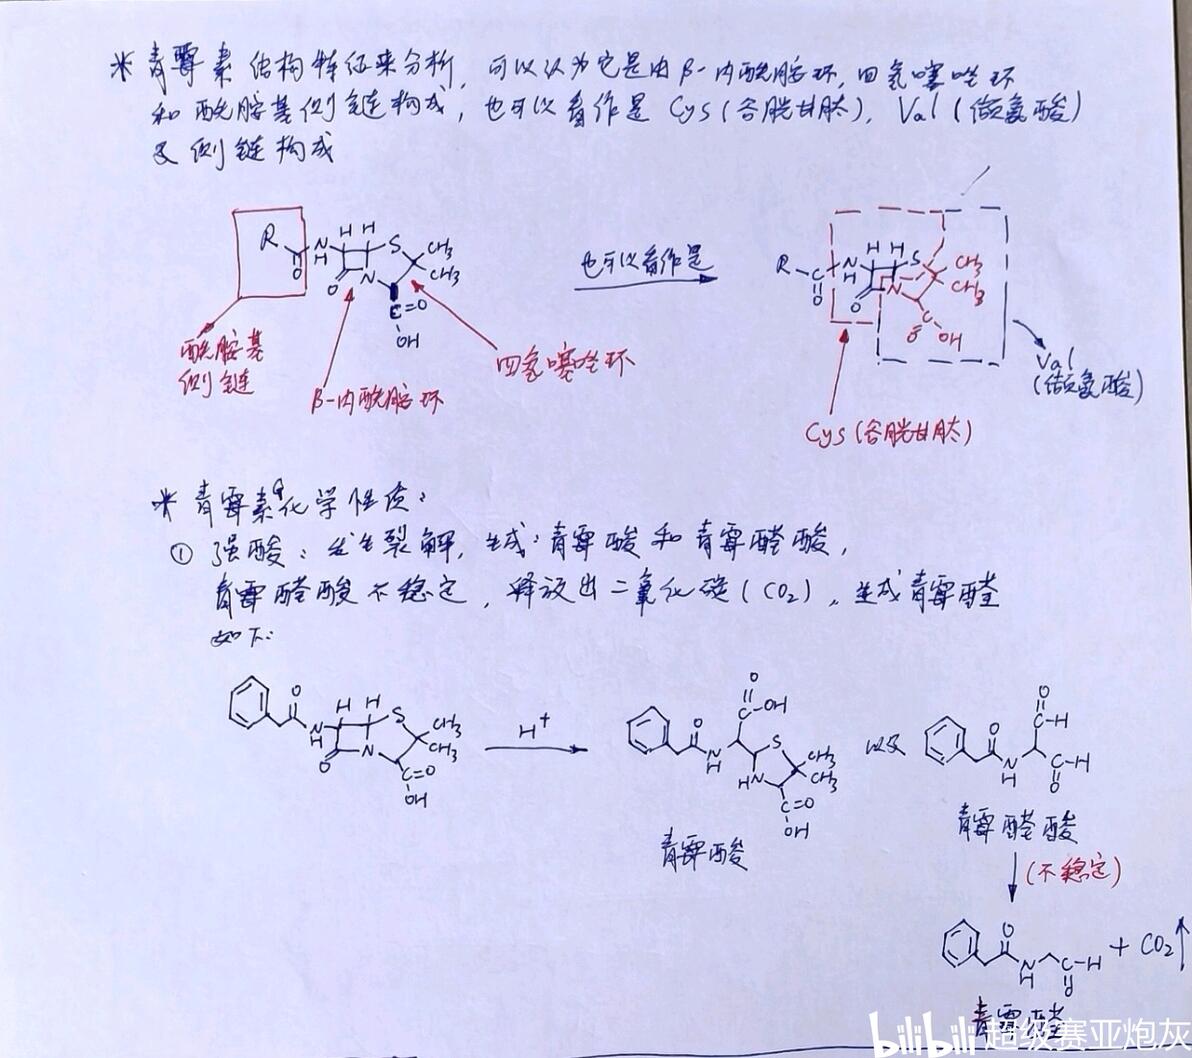 * 青霉素结构特征来分析,可以认为它是由β-内酰胺环,四氢噻唑环
和酰胺基侧链构成,也可以看作是Cys(谷胱甘肽),Val(缬氨酸)
及侧链构成
R N H O H H S N O CH₃ CH₃ C=O OH
也可以看作是
R-C O N H O H H S N CH₃ CH₃ C O OH
酰胺基
侧链
β-内酰胺环
四氢噻唑环
Val
(缬氨酸)
Cys(谷胱甘肽)
* 青霉素G化学性质:
① 强酸:发生裂解,生成:青霉酸和青霉醛酸,
青霉醛酸不稳定,释放出二氧化碳(CO₂),生成青霉醛
如下:
O N H H H S N O CH₃ CH₃ C=O OH
H⁺
O N H O C-OH S HN CH₃ CH₃ C=O OH
以及
O N H O C-H C-H O
青霉酸
青霉醛酸
(不稳定)
O N H C-H O + CO₂↑
青霉醛
bilibili 超级赛亚炮灰